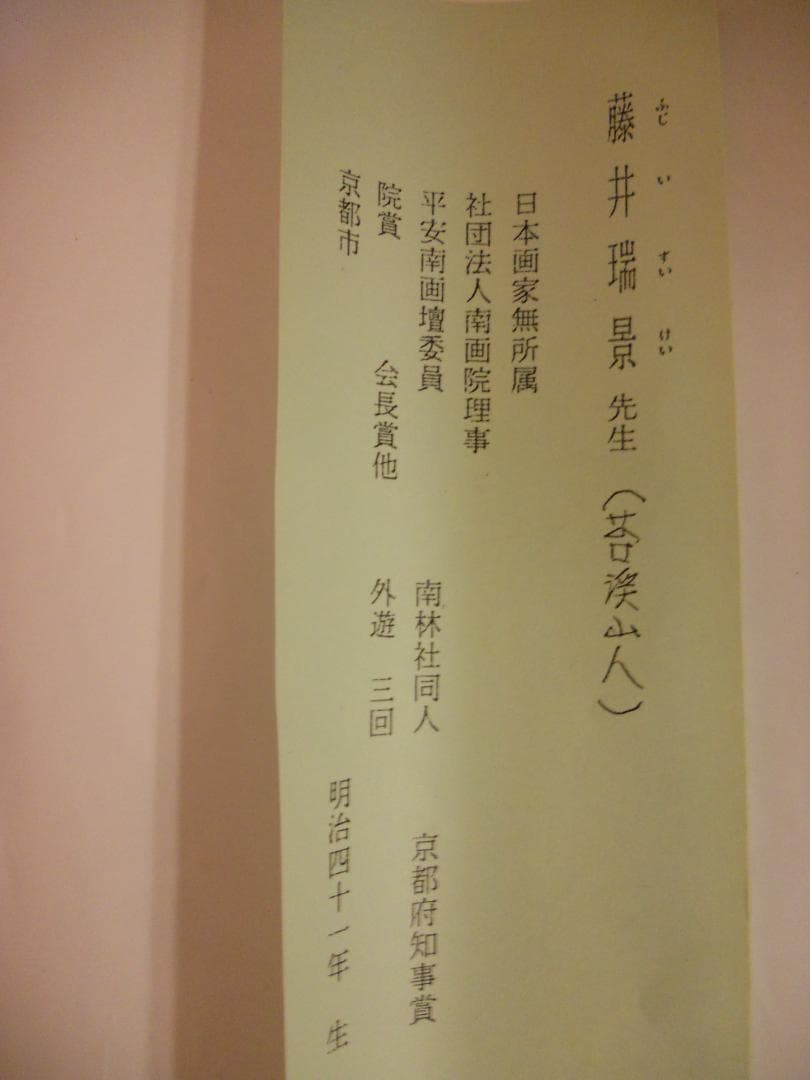 ふじ い すい けい
藤井瑞景先生（苔渓山人）
日本画家無所属
社団法人南画院理事
平安南画壇委員　南林社同人　京都府知事賞
院賞　会長賞他　外遊　三回
京都市　明治四十一年　生